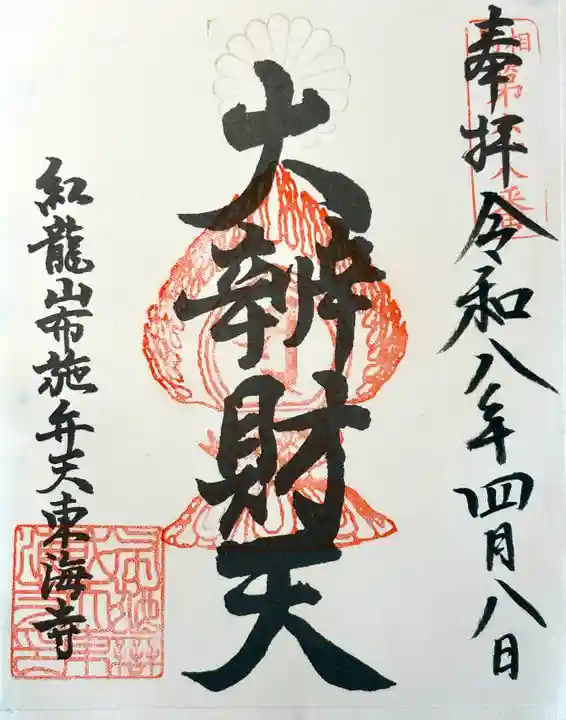 奉拝 令和八年四月八日
大辨財天
紅龍山布施弁天東海寺